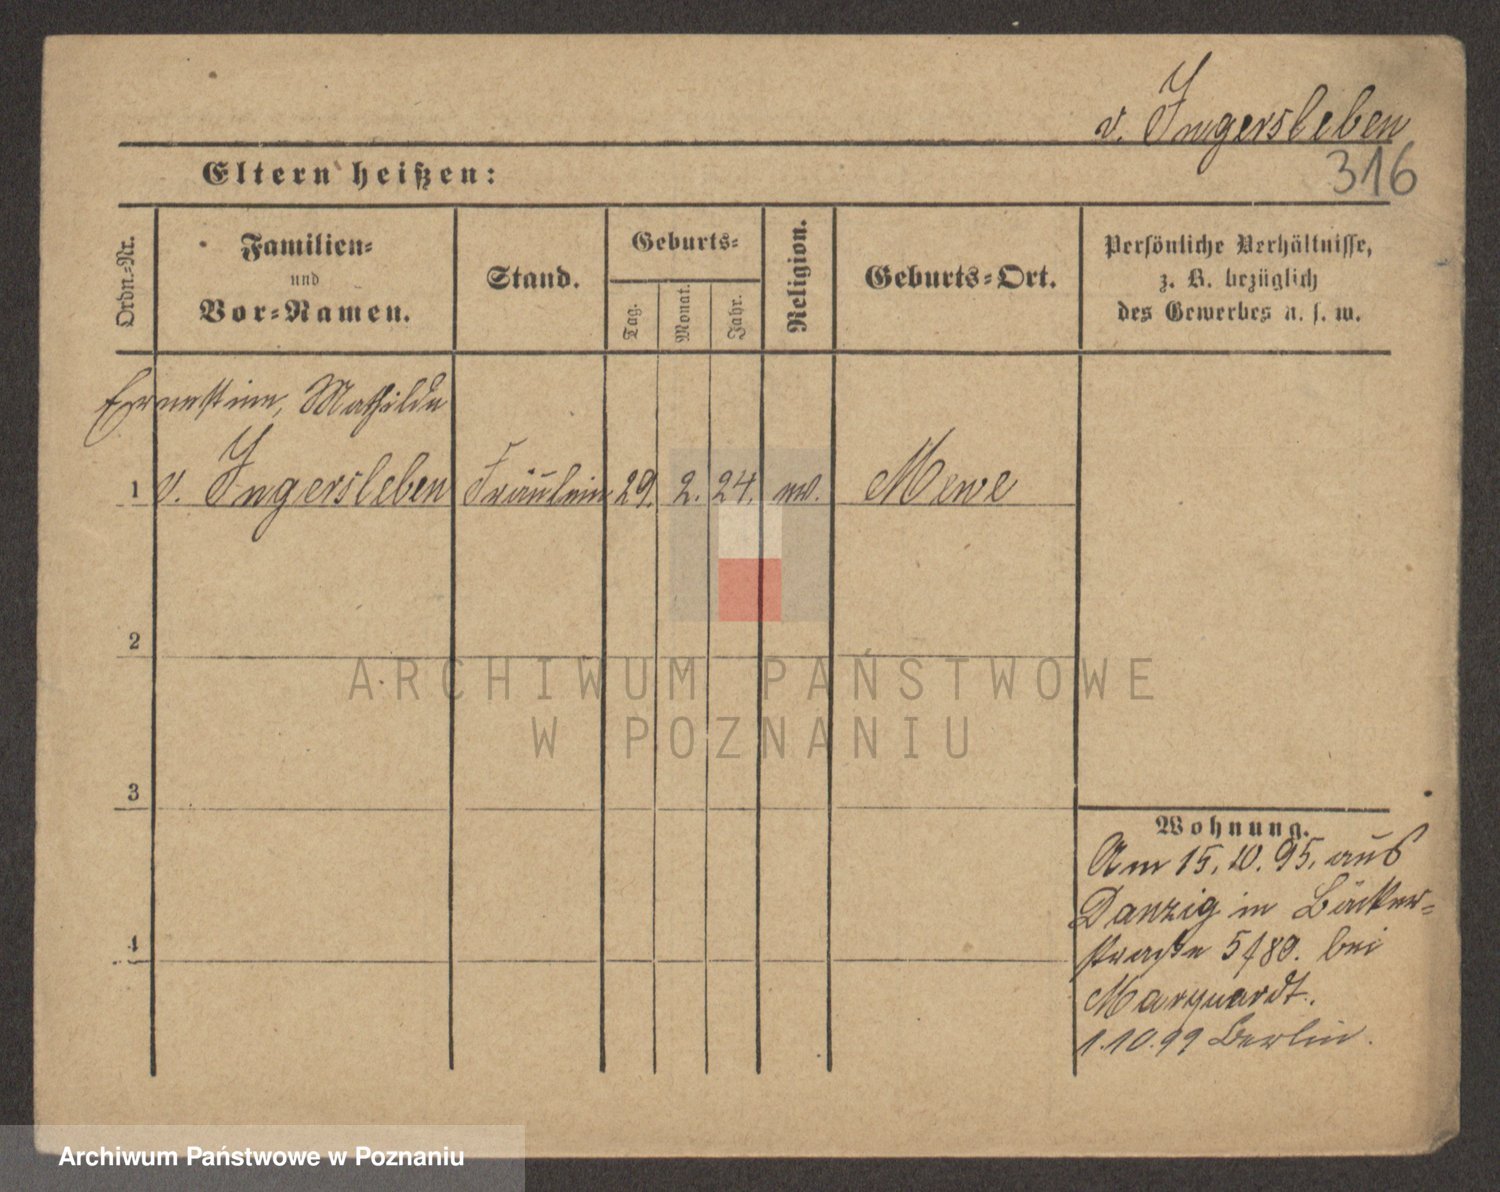 v. Ingersleben
316
Eltern heißen:
Ordn.-Nr.
Familien-
und
Vor-Namen.
Stand.
Geburts-
Tag.
Monat.
Jahr.
Religion.
Geburts-Ort.
Persönliche Verhältnisse,
z. B. bezüglich
des Gewerbes u. s. w.
Ernestine, Mathilde
1 v. Ingersleben Fräulein 29. 2. 24. ev. Mewe
2
3
4
ARCHIWUM PAŃSTWOWE
W POZNANIU
Wohnung.
Am 15.10.95. aus
Danzig in Bäcker-
straße bei
Marquardt.
1.10.99 Berlin.
Archiwum Państwowe w Poznaniu